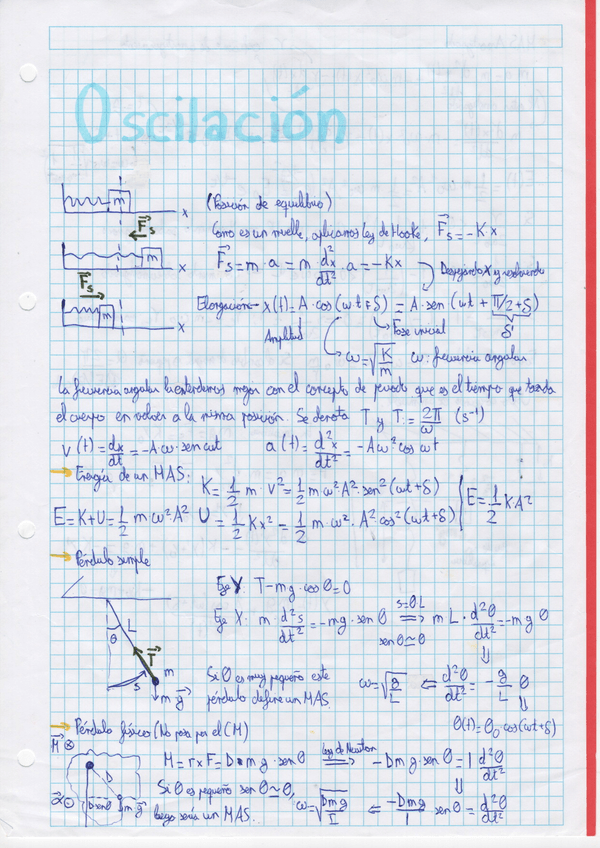 Oscilación
m
x
(Posición de equilibrio)
F⃗s
Como es un muelle, aplicamos ley de Hooke, F⃗s = -Kx
m
x
F⃗s = m · a = m d²x/dt² · a = -Kx
Despejando x y resolviendo
F⃗s
m
x
Elongación → x(t) = A · cos(ωt + δ) = A · sen(ωt + π/2 + δ)
δ'
Amplitud
Fase inicial
ω = √(K/m) ω: frecuencia angular
La frecuencia angular la entendemos mejor con el concepto de periodo que es el tiempo que tarda
el cuerpo en volver a la misma posición. Se denota T y T = 2π/ω (s⁻¹)
v(t) = dx/dt = -Aω · sen ωt a(t) = d²x/dt² = -Aω² cos ωt
→ Energía de un MAS: K = 1/2 m v² = 1/2 m ω² A² · sen²(ωt + δ)
E = 1/2 KA²
E = K + U = 1/2 m ω² · A² U = 1/2 Kx² = 1/2 m ω² · A² cos²(ωt + δ)
→ Péndulo simple
Eje Y: T - mg · cos θ = 0
Eje X: m d²s/dt² = -mg · sen θ ⇒ m L · d²θ/dt² = -mg θ
s = θL
sen θ ≃ θ
θ
L
T⃗
m
s
m g⃗
Si θ es muy pequeño este
péndulo define un MAS
ω = √(g/L) ⇐ d²θ/dt² = -g/L θ
θ(t) = θ₀ cos(ωt + δ)
→ Péndulo físico (No pasa por el CM)
M⃗ ⊗
M = r x F = D · mg · sen θ ⇒ -Dmg · sen θ = I d²θ/dt²
Ley de Newton
D
D senθ
m g⃗
Si θ es pequeño sen θ ≃ θ,
luego sería un MAS.
ω = √(Dmg/I) ⇐ -Dmg/I sen θ = d²θ/dt²